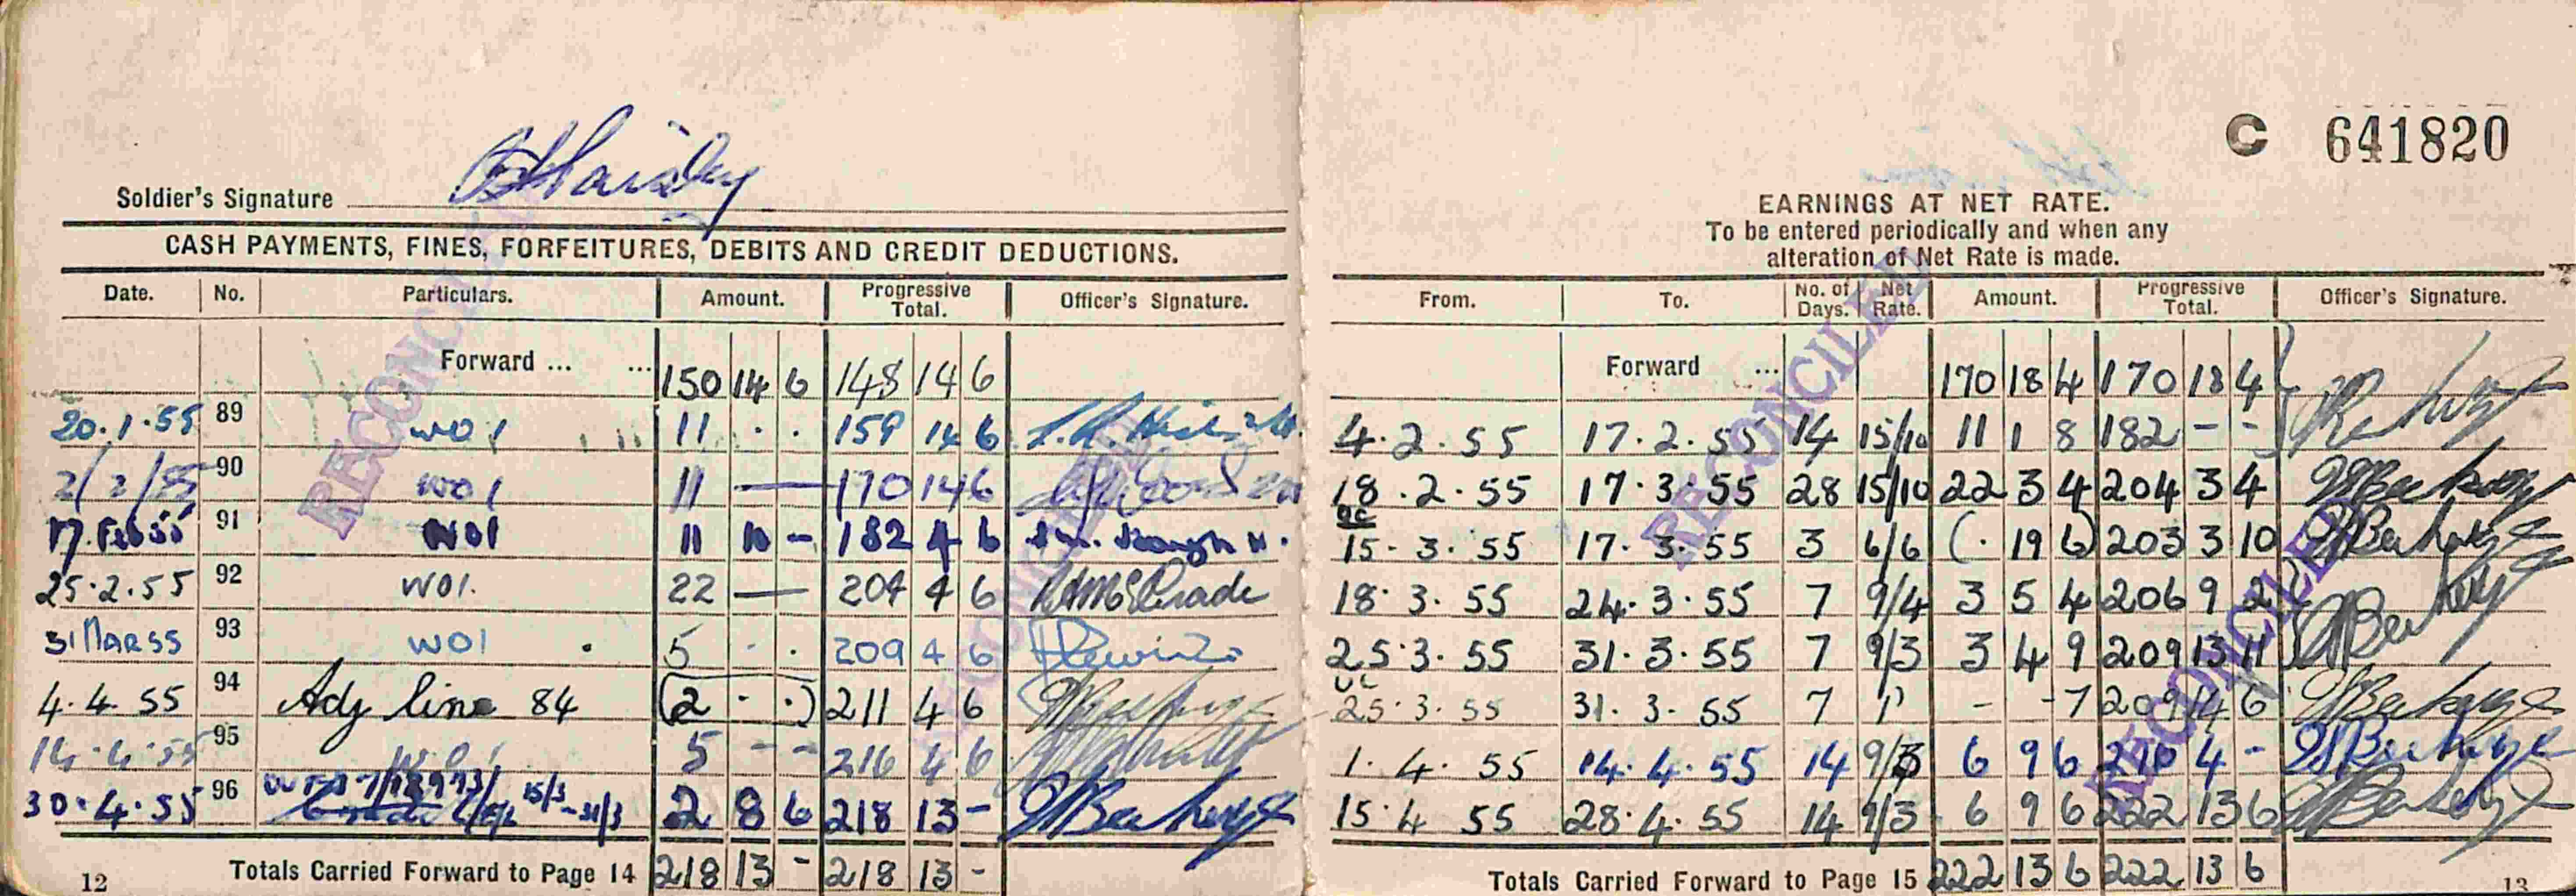 C 641820
Soldier's Signature
CASH PAYMENTS, FINES, FORFEITURES, DEBITS AND CREDIT DEDUCTIONS.
Date. No. Particulars. Amount. Progressive Total. Officer's Signature.
Forward ... ... 150 14 6 148 14 6
20.1.55 89 W01 11 . . 159 14 6
2/2/55 90 W01 11 — 170 14 6
17. Feb 55 91 W01 11 10 – 182 4 6
25.2.55 92 W01. 22 — 204 4 6
31 Mar 55 93 W01 5 . . 209 4 6
4.4.55 94 Adj line 84 (2 . .) 211 4 6
14.4.55 95 W01 5 – – 216 4 6
30.4.55 96 15/3 – 31/3 2 8 6 218 13 –
Totals Carried Forward to Page 14 218 13 – 218 13 –
12
EARNINGS AT NET RATE.
To be entered periodically and when any
alteration of Net Rate is made.
From. To. No. of Days. Net Rate. Amount. Progressive Total. Officer's Signature.
Forward ... 170 18 4 170 18 4
4.2.55 17.2.55 14 15/10 11 1 8 182 – –
18.2.55 17.3.55 28 15/10 22 3 4 204 3 4
15.3.55 17.3.55 3 6/6 (. 19 6) 203 3 10
18.3.55 24.3.55 7 9/4 3 5 4 206 9 2
25.3.55 31.3.55 7 9/3 3 4 9 209 13 11
25.3.55 31.3.55 7 1' – – 7 209 14 6
1.4.55 14.4.55 14 9/3 6 9 6 216 4 –
15.4.55 28.4.55 14 9/3 6 9 6 222 13 6
Totals Carried Forward to Page 15 222 13 6 222 13 6
13
RECONCILED
RECONCILED
RECONCILED
RECONCILED